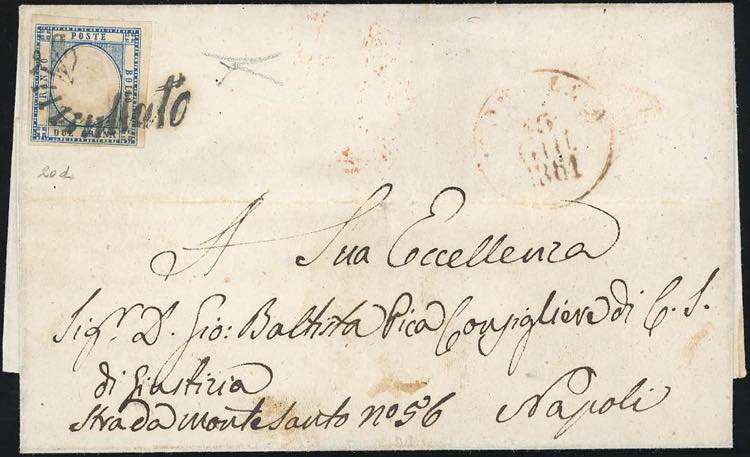 POSTE
FRANCO
BOLLO
DUE GRANA
Annullato
GIU
1861
20 d
A Sua Eccellenza
Sigr. D. Gio: Battista Pica Consigliere di C. S.
di Giustizia
Strada Monte Santo no 56 Napoli